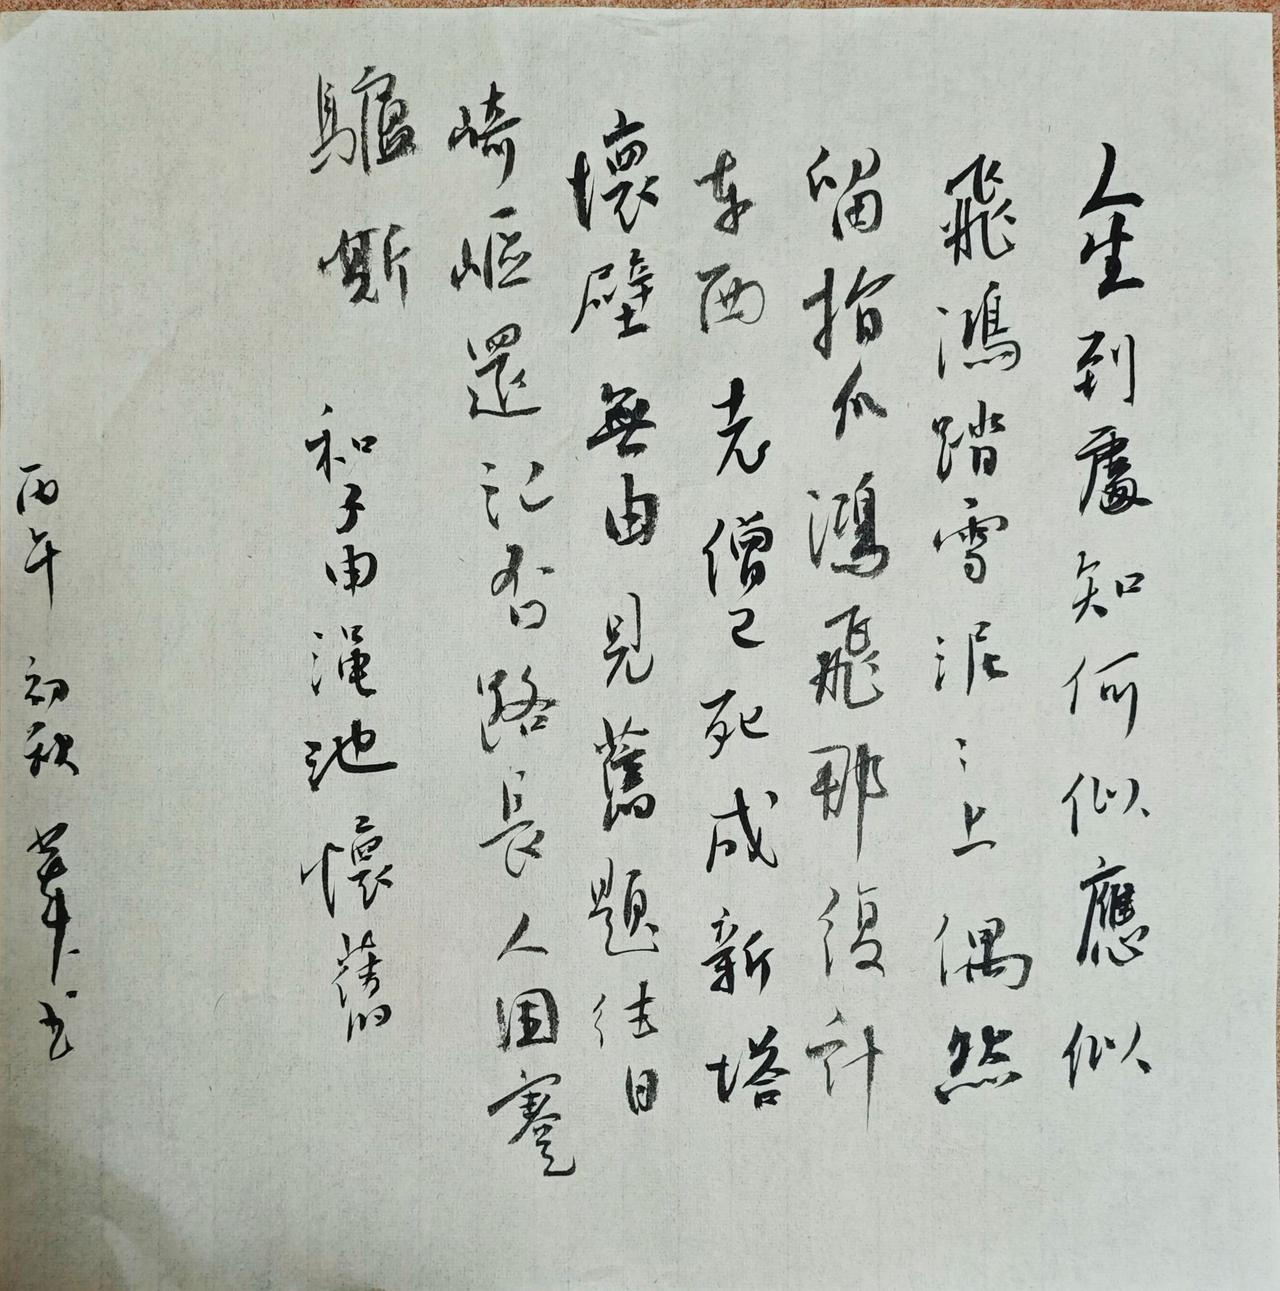 人生到處知何似應似
飛鴻踏雪泥〻上偶然
留指爪鴻飛那復計
東西老僧已死成新塔
壞壁無由見舊題往日
崎嶇還記否路長人困蹇
驢嘶
和子由澠池懷舊
丙午初秋 書